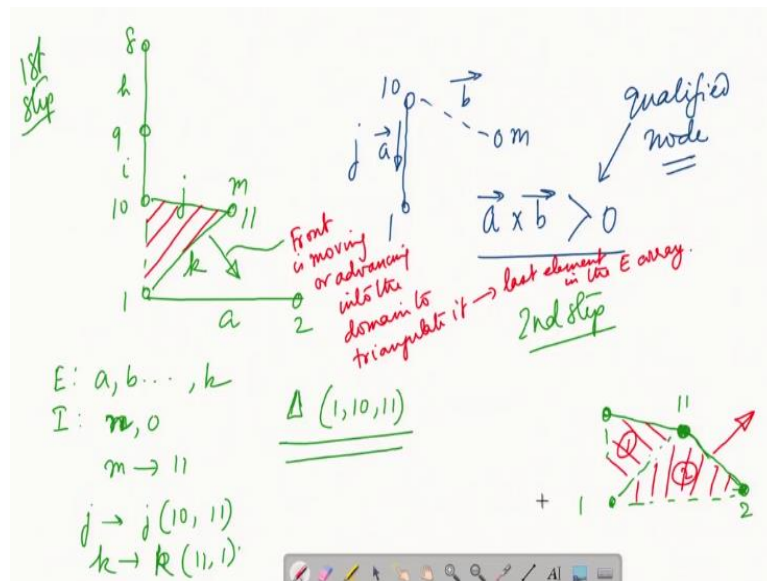 1st
step
8
h
9
i
10
j
m
11
1
k
a
2
Front
is moving
or advancing
into the
domain to
triangulate it → last element
in the E array.
10
b
j
a
m
1
qualified
node
a x b > 0
2nd step
E: a, b..., k
I: n, 0
m → 11
j → j (10, 11)
k → k (11, 1)
Δ (1,10,11)
11
1
1
2
1
2
A